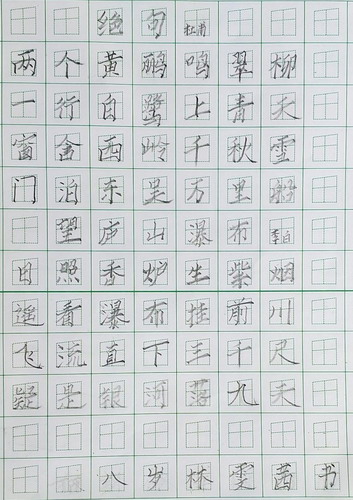 绝句 杜甫
两个黄鹂鸣翠柳
一行白鹭上青天
窗含西岭千秋雪
门泊东吴万里船
望庐山瀑布 李白
日照香炉生紫烟
遥看瀑布挂前川
飞流直下三千尺
疑是银河落九天
八岁林雯茜书